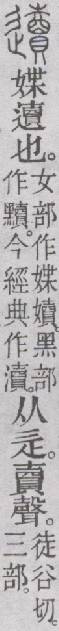 䢱
媟䢱也。
女部作媟嬻。黑部
作黷。今經典作瀆。
从辵。賣聲。
徒谷切。
三部。